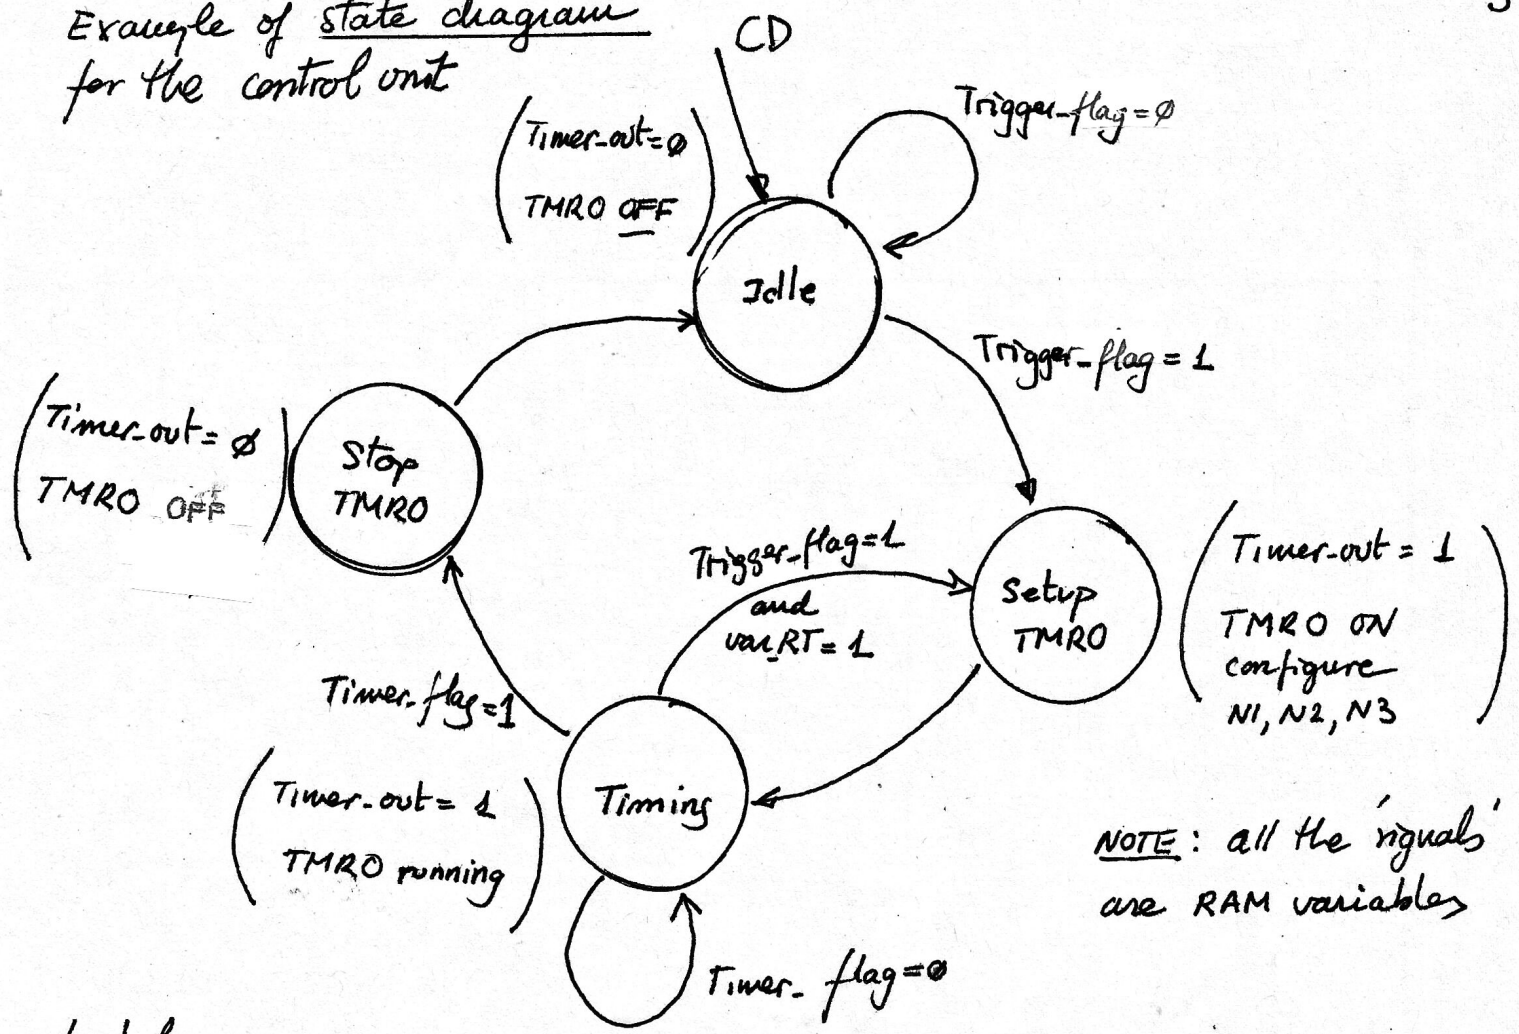 Example of state diagram
for the control unit
CD
Timer_out=Ø
TMRO OFF
Trigger_flag=Ø
Idle
Trigger_flag = 1
Timer_out= Ø
TMRO OFF
Stop
TMRO
Trigger_flag=1
and
var_RT= 1
Setup
TMRO
Timer_out = 1
TMRO ON
configure
N1, N2, N3
Timer_flag=1
Timer_out= 1
TMRO running
Timing
NOTE: all the 'signals'
are RAM variables
Timer_ flag=Ø